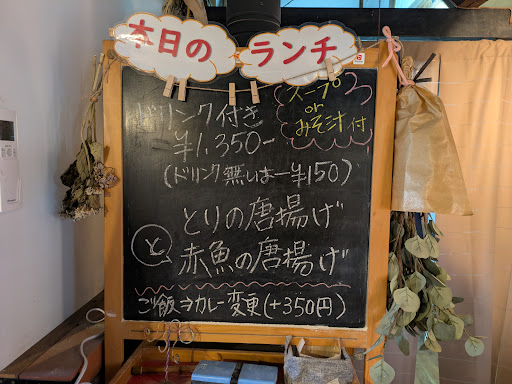 本日の ランチ
スープ
or
みそ汁付
ドリンク付き
¥1,350-
(ドリンク無しは-¥150)
とりの唐揚げ
と
赤魚の唐揚げ
ご飯→カレー変更(+350円)